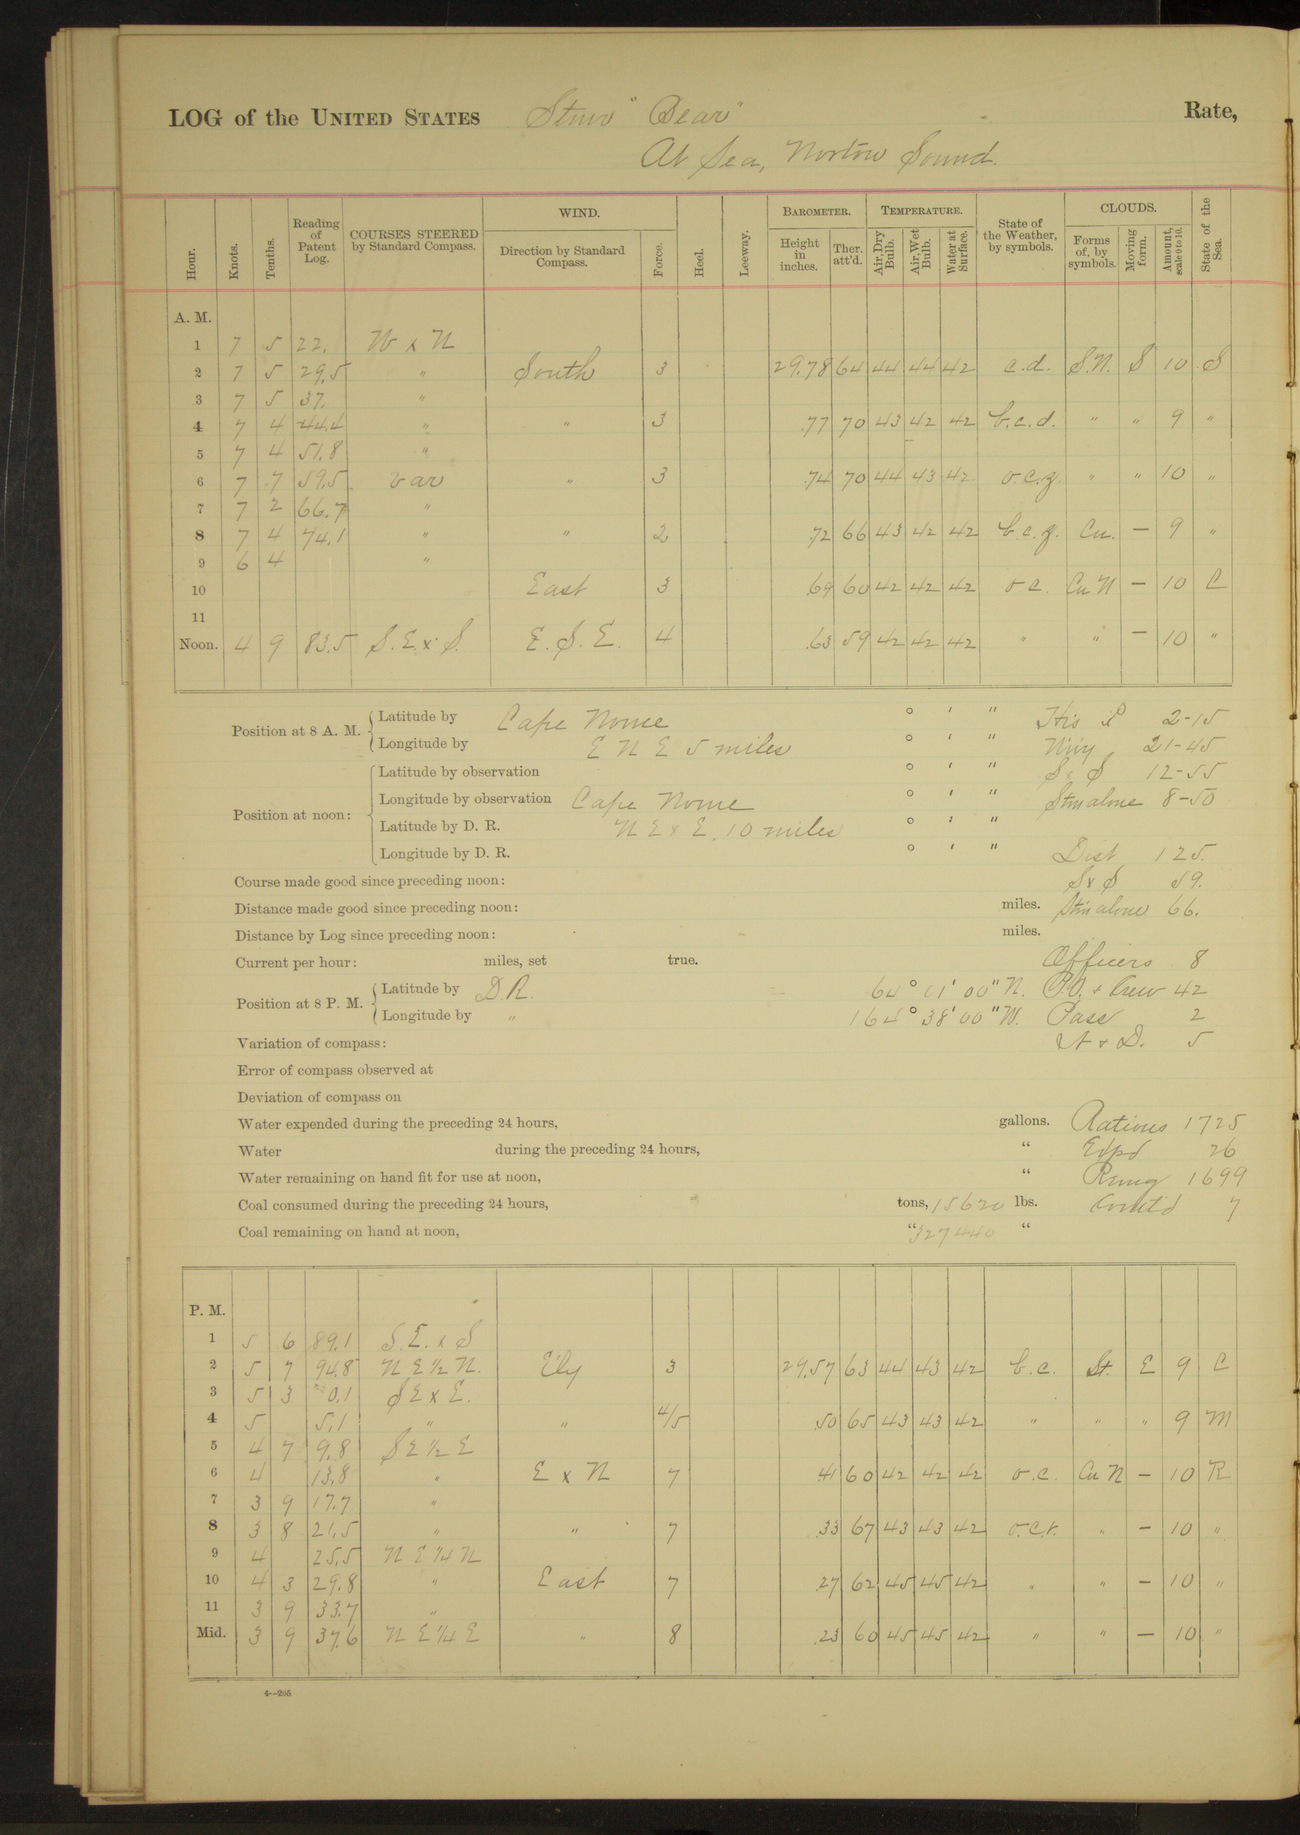 LOG of the UNITED STATES Stmr "Bear" Rate,
At Sea, Norton Sound.
Hour. Knots. Tenths. Reading of Patent Log. COURSES STEERED by Standard Compass. WIND. Direction by Standard Compass. Force. Heel. Leeway. BAROMETER. Height in inches. Ther. att'd. TEMPERATURE. Air, Dry Bulb. Air, Wet Bulb. Water at Surface. State of the Weather, by symbols. CLOUDS. Forms of, by symbols. Moving form. Amount, scale 0 to 10. State of the Sea.
A. M.
1 7 5 22. W x N
2 7 5 29.5 " South 3 29.78 64 44 44 42 c.d. S.N. S 10 S
3 7 5 37. "
4 7 4 44.4 " " 3 .77 70 43 42 42 b.c.d. " " 9 "
5 7 4 51.8 "
6 7 .7 59.5 var " 3 .74 70 44 43 42 o.c.g. " " 10 "
7 7 2 66.7 "
8 7 4 74.1 " " 2 .72 66 43 42 42 b.c.g. Cu. — 9 "
9 6 4 "
10 East 3 .69 60 42 42 42 o c. Cu N — 10 C
11
Noon. 4 9 83.5 S. E. x S. E. S. E. 4 .63 59 42 42 42 " " — 10 "
Position at 8 A. M. Latitude by Cape Nome ° ' " 2-15
Longitude by E N E 5 miles ° ' " 21-45
Position at noon: Latitude by observation ° ' " S & S 12-55
Longitude by observation Cape Nome ° ' " Stm alone 8-50
Latitude by D. R. N E x E. 10 miles ° ' "
Longitude by D. R. ° ' " Dist 125.
Course made good since preceding noon: S & S 59.
Distance made good since preceding noon: miles. Stm alone 66.
Distance by Log since preceding noon: miles.
Current per hour: miles, set true. Officers 8
Position at 8 P. M. Latitude by D.R. 64° 01' 00" N. P.O. + Crew 42
Longitude by " 164° 38' 00" W. Pass 2
Variation of compass: + D. 5
Error of compass observed at
Deviation of compass on
Water expended during the preceding 24 hours, gallons. Rations 1725
Water during the preceding 24 hours, " Expd 26
Water remaining on hand fit for use at noon, " Remg 1699
Coal consumed during the preceding 24 hours, tons, 15620 lbs. Comtd 7
Coal remaining on hand at noon, " 327440 "
P. M.
1 5 6 89.1 S. E. x S
2 5 7 94.8 N E ½ N. E'ly 3 29.57 63 44 43 42 b.c. St. E 9 C
3 5 3 0.1 S E x E.
4 5 5.1 " " 4/5 .50 65 43 43 42 " " " 9 M
5 4 7 9.8 S E ½ E
6 4 13.8 " E x N 7 .41 60 42 42 42 o.c. Cu N — 10 R
7 3 9 17.7 "
8 3 8 21.5 " " 7 .33 67 43 43 42 o.c.r. " — 10 "
9 4 25.5 N E ¼ N
10 4 3 29.8 " East 7 .27 62 45 45 42 " " — 10 "
11 3 9 33.7 "
Mid. 3 9 37.6 N E ¼ E " 8 .23 60 45 45 42 " " — 10 "
4--205